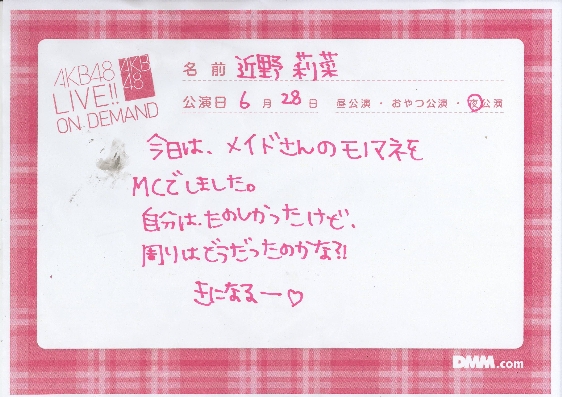 AKB48
LIVE!!
ON DEMAND
AKB
48
名前 近野 莉菜
公演日 6月28日 昼公演・おやつ公演・夜公演
今日は、メイドさんのモノマネを
MCでしました。
自分は、たのしかったけど、
周りはどうだったのかな?!
きになるー♡
DMM.com